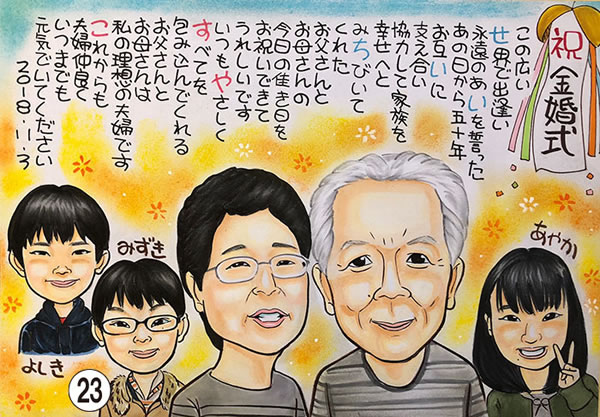 祝 金婚式
この広い
世界で出逢い
永遠のあいを誓った
あの日から五十年
お互いに
支え合い
協力して家族を
幸せへと
みちびいて
くれた
お父さんと
お母さんの
今日の佳き日を
お祝いできて
うれしいです
いつもやさしく
すべてを
包み込んでくれる
お父さんと
お母さんは
私の理想の夫婦です
これからも
夫婦仲良く
いつまでも
元気でいてください
2018.11.3
あやか
みずき
よしき
23